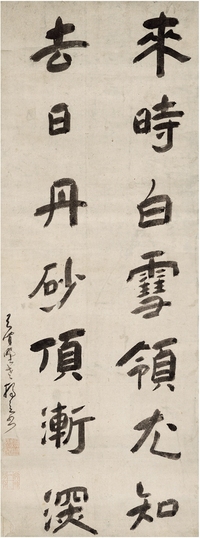 來時白雪領尤知
去日丹砂頂漸深